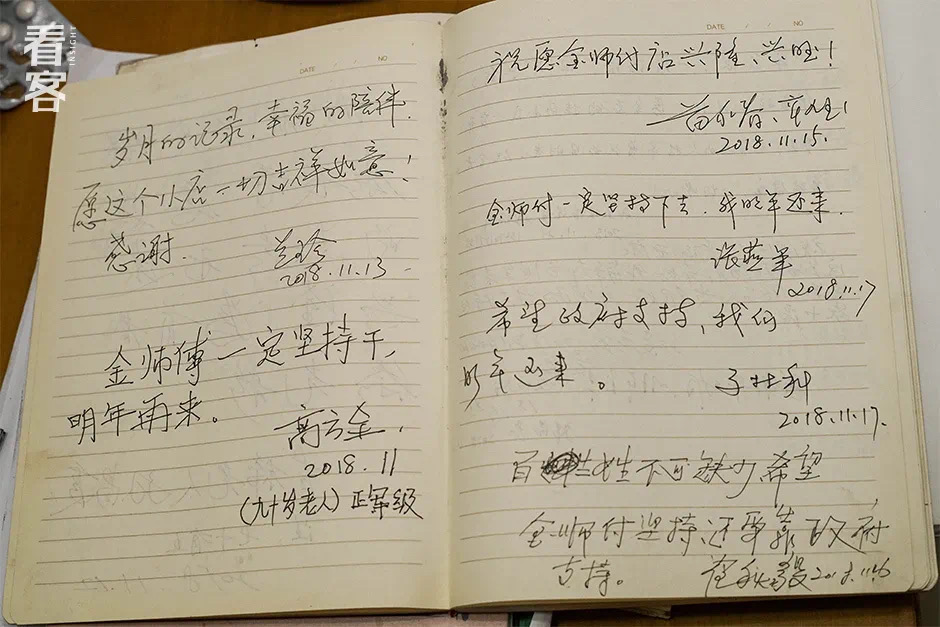 看客
INSIGHT
DATE NO
岁月的记录，幸福的陪伴．
愿这个小店一切吉祥如意！
感谢．
2018.11.13
金师傅一定坚持干，
明年再来。
高方金．
2018.11
（九十岁老人）正军级
DATE NO
祝愿金师付店兴隆、兴旺！
2018.11.15.
金师付一定坚持下去．我明年还来．
张燕军
2018.11.17
希望政府支持，我们
明年还来。
2018.11.17.
百姓不可缺少希望
金师付坚持还要靠政府
支持。